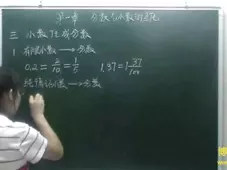 第一章 分数与小数的互化
三 小数化成分数
1 有限小数 → 分数
0.2 = 2/10 = 1/5 1.37 = 1 37/100
纯循环小数 → 分数
博